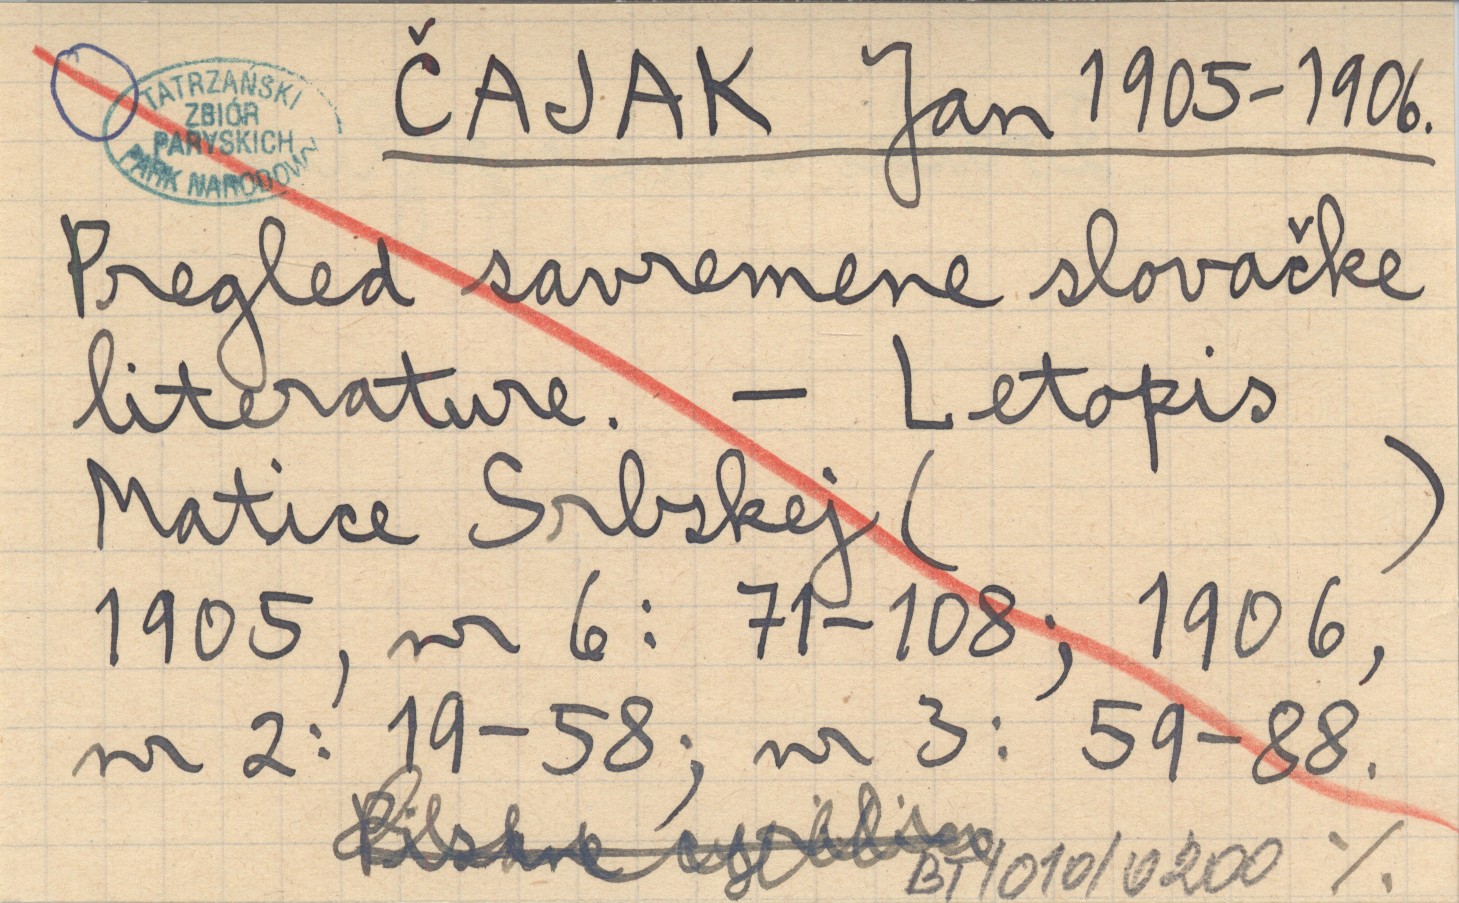 TATRZAŃSKI
ZBIÓR
PARYSKICH
PARK NARODOWY
ČAJAK Jan 1905-1906.
Pregled savremene slovačke
literature. — Letopis
Matice Srbskej ( )
1905, nr 6: 71-108; 1906,
nr 2: 19-58; nr 3: 59-88.
BT/010/0200 %.